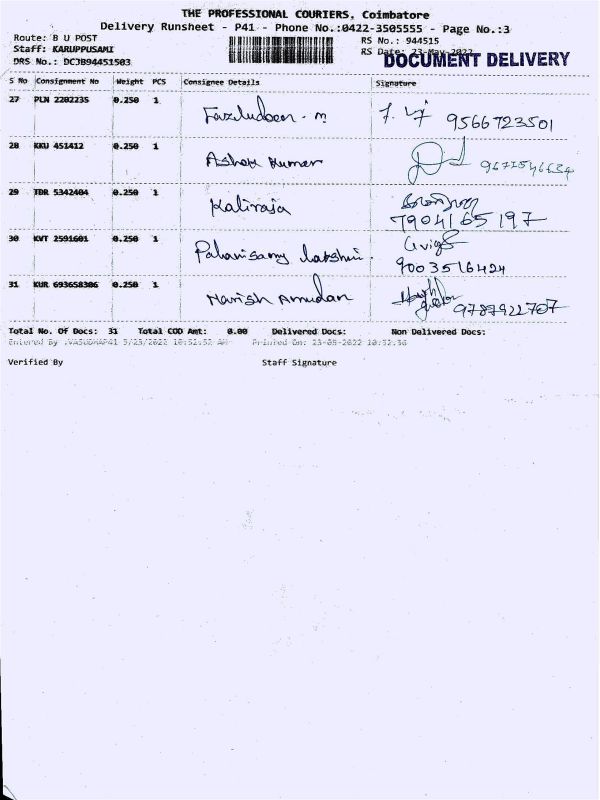 THE PROFESSIONAL COURIERS, Coimbatore
Delivery Runsheet - P41 - Phone No.:0422-3505555 - Page No.:3
Route: B U POST
RS No.: 944515
Staff: KARUPPUSAMI
RS Date: 23-May-2022
DRS No.: DCJB94451503
DOCUMENT DELIVERY
S No Consignment No Weight PCS Consignee Details Signature
27 PLN 2202235 0.250 1 Fazludeen - m 9566723501
28 KKU 451412 0.250 1 Ashok Kumar
29 TDR 5342404 0.250 1 Kaliraja 7904165197
30 KVT 2591601 0.250 1 Palanisamy lakshmi. 9003516424
31 KUR 693658306 0.250 1 Harish Amudan 9787922707
Total No. Of Docs: 31 Total COD Amt: 0.00 Delivered Docs: Non Delivered Docs:
Entered By :VASUDHAP41 5/23/2022 10:52:52 AM Printed On: 23-05-2022 10:52:56
Verified By Staff Signature